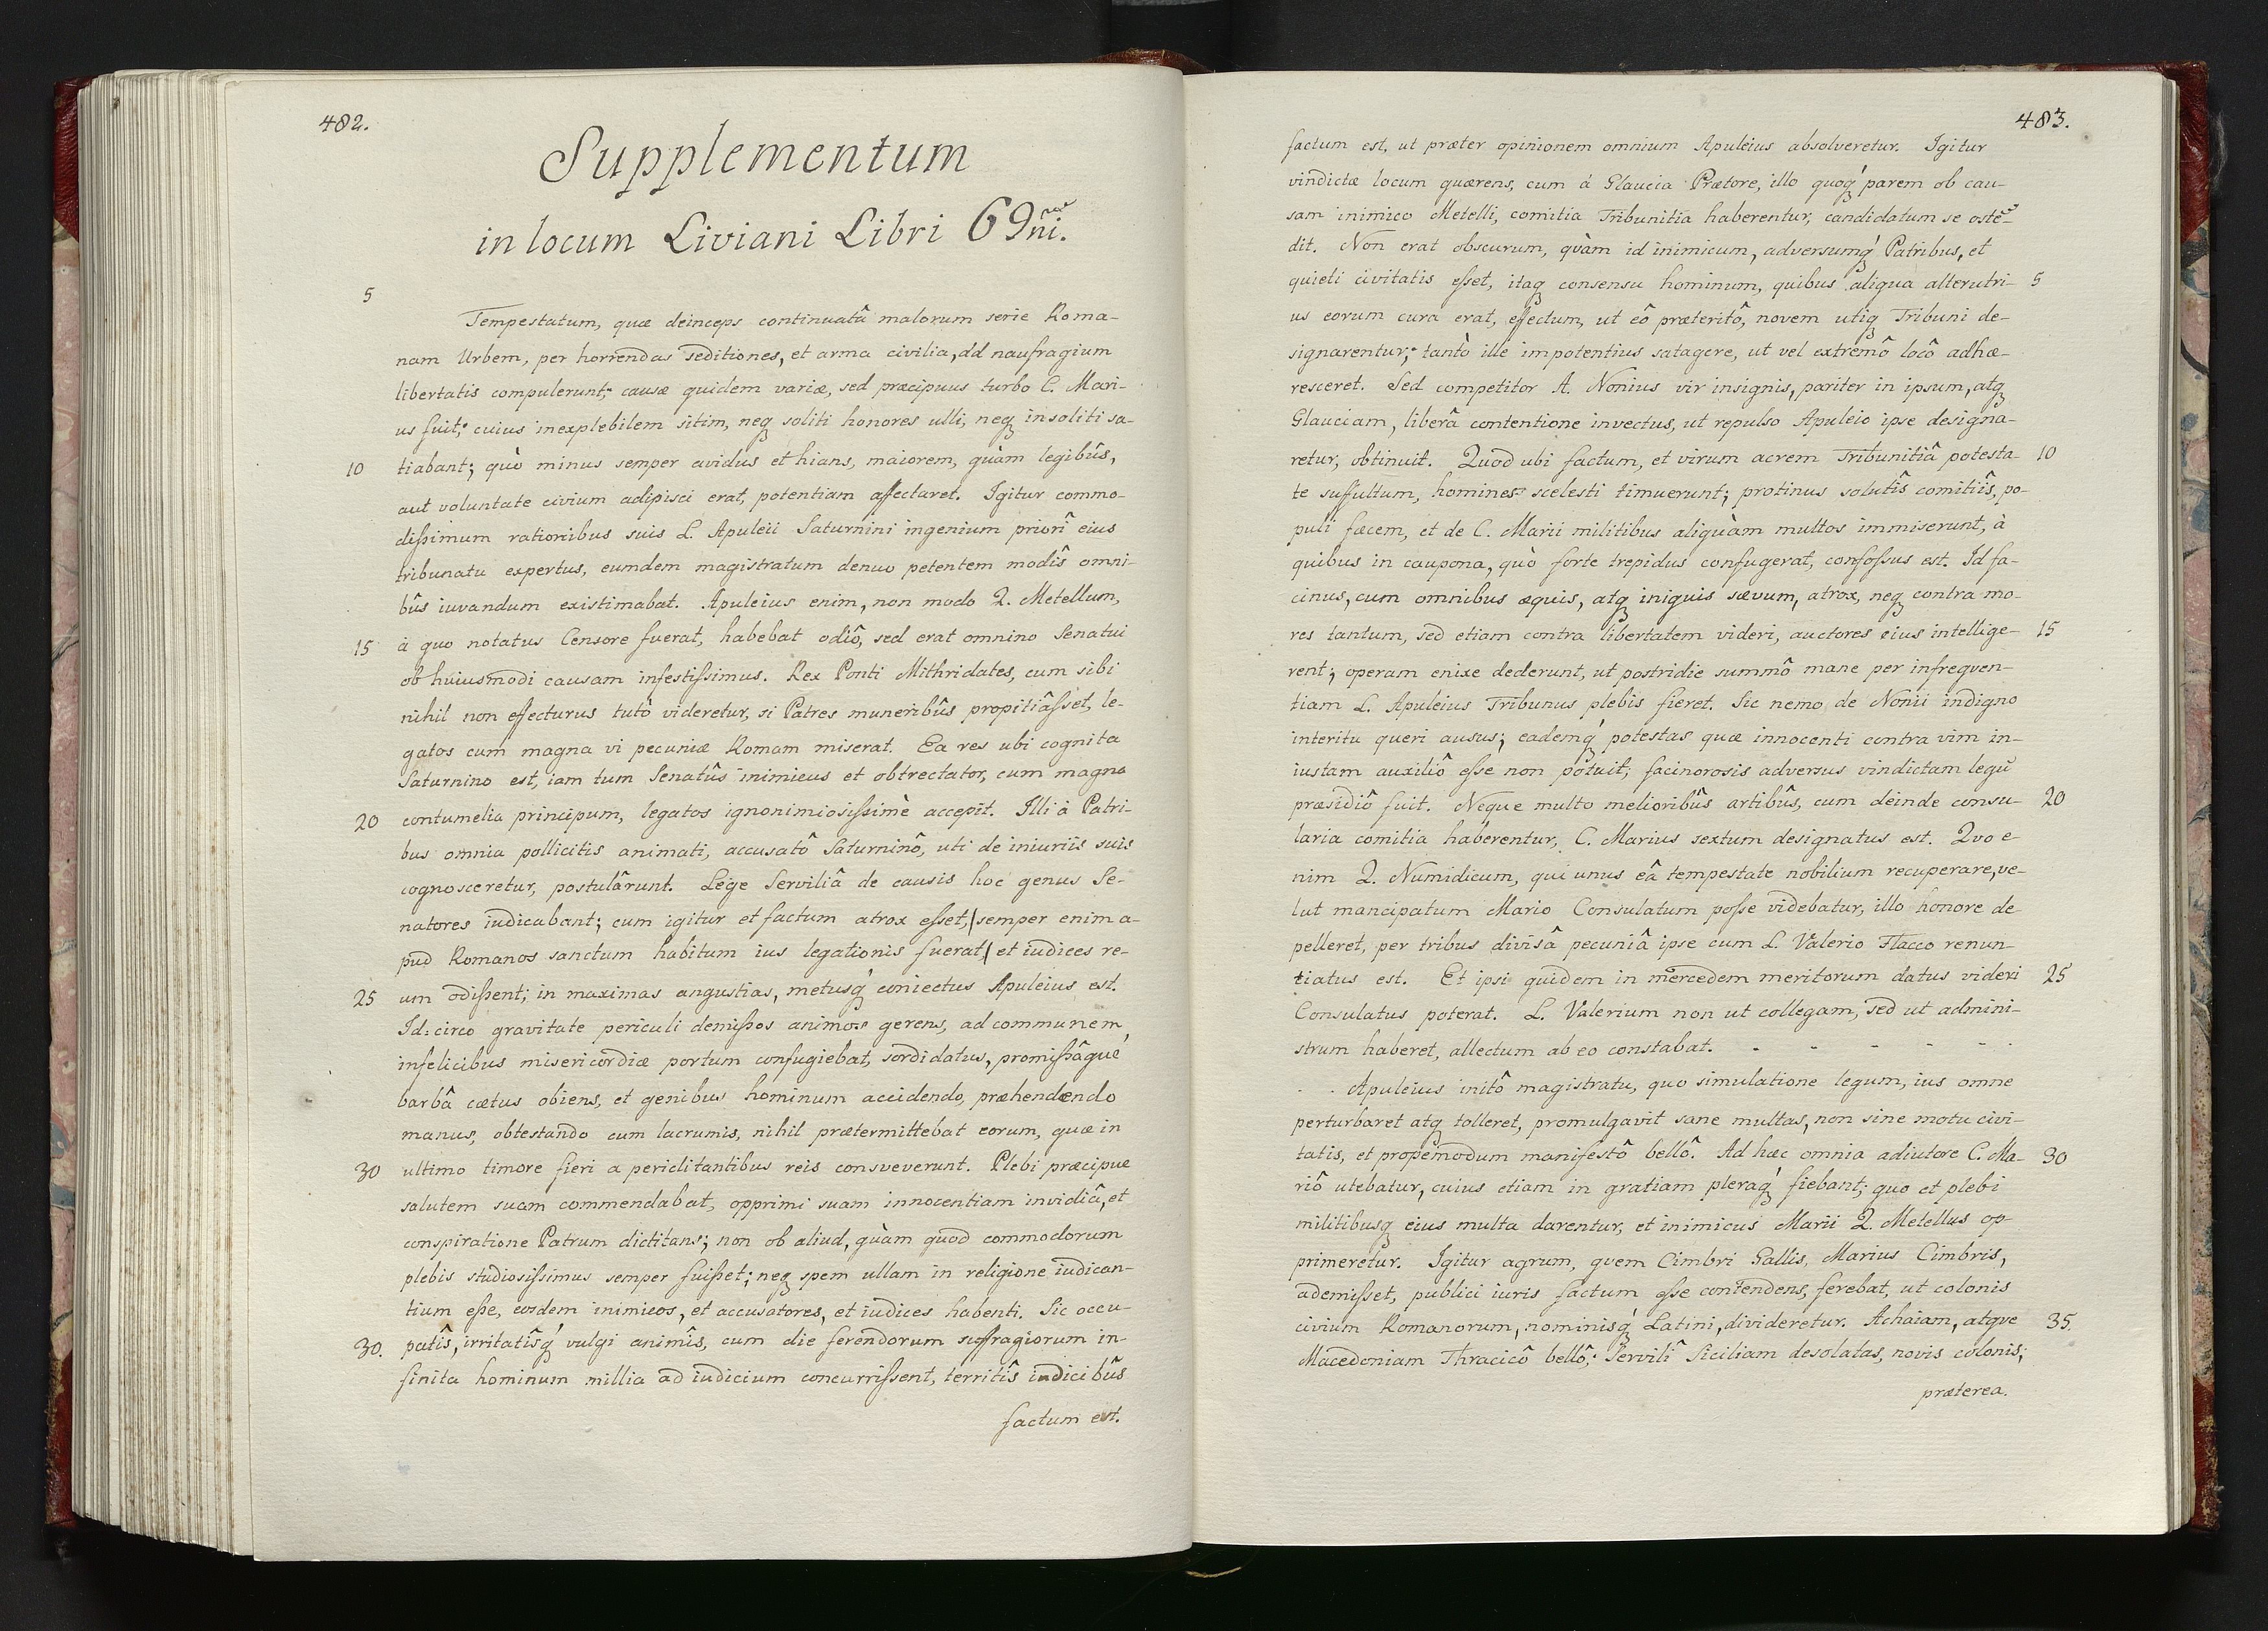 482.
Supplementum
in locum Liviani Libri 69ni.
5
Tempestatum, quæ deinceps continuatâ malorum serie Roma-
nam Urbem, per horrendas seditiones, et arma civilia, ad naufragium
libertatis compulerunt; causæ quidem variæ, sed præcipuus turbo C. Mari-
us fuit; cuius inexplebilem sitim, neq soliti honores ulli, neq insoliti sa-
10 tiabant; quò minus semper avidus et hians, maiorem, quàm legibûs,
aut voluntate civium adipisci erat, potentiam affectaret. Igitur commo-
dissimum rationibus suis L. Apuleii Saturnini ingenium priorî eius
tribunatu expertus, eumdem magistratum denuo petentem modîs omni-
bûs iuvandum existimabat. Apuleius enim, non modo Q. Metellum,
15 à quo notatus Censore fuerat, habebat odiô, sed erat omnino Senatui
ob huiusmodi causam infestissimus. Rex Ponti Mithridates, cum sibi
nihil non effecturus tutò videretur, si Patres muneribûs propitiâsset, le-
gatos cum magna vi pecuniæ Romam miserat. Ea res ubi cognita
Saturnino est, iam tum Senatûs inimicus et obtrectator, cum magna
20 contumelia principum, legatos ignonimiosissimè accepit. Illi à Patri-
bus omnia pollicitis animati, accusatô Saturninô, uti de iniuriis suis
cognosceretur, postulârunt. Lege Serviliâ de causis hoc genus Se-
natores iudicabant; cum igitur et factum atrox esset,/ semper enim a-
pud Romanos sanctum habitum ius legationis fuerat,/ et iudices re-
25 um odissent; in maximas angustias, metusq́ coniectus Apuleius est.
Id:circo gravitate periculi demissos animos gerens, ad communem
infelicibus misericordiæ portum confugiebat, sordidatus, promissâque
barbâ cætus obiens, et genibus hominum accidendo, præhendendo
manus, obtestando cum lacrumis, nihil prætermittebat eorum, quæ in
30 ultimo timore fieri a periclitantibus reis consveverunt. Plebi præcipue
salutem suam commendabat, opprimi suam innocentiam invidiâ, et
conspiratione Patrum dictitans; non ob aliud, quàm quod commodorum
plebis studiosissimus semper fuisset; neq spem ullam in religione iudican-
tium esse, eosdem inimicos, et accusatores, et iudices habenti. Sic occu-
30. patîs, irritatîsq́ vulgi animîs, cum die ferendorum suffragiorum in-
finita hominum millia ad iudicium concurrissent, territîs iudicibûs
factum est.
483.
factum est, ut præter opinionem omnium Apuleius absolveretur. Igitur
vindictæ locum quærens, cum à Glaucia Prætore, illo quoq́ parem ob cau-
sam inimico Metelli, comitia Tribunitia haberentur, candidatum se ostē-
dit. Non erat obscurum, quàm id inimicum, adversumq́ Patribus, et
quieti civitatis esset, itaq consensu hominum, quibus aliqua alterutri- 5
us eorum cura erat, effectum, ut eô præteritô, novem utiq Tribuni de-
signarentur; tantò ille impotentius satagere, ut vel extremô locô adhæ-
resceret. Sed competitor A. Nonius vir insignis, pariter in ipsum, atq
Glauciam, liberâ contentione invectus, ut repulso Apuleio ipse designa-
retur, obtinuit. Quod ubi factum, et virum acrem Tribunitiâ potesta- 10
te suffultum, homines scelesti timuerunt; protinus solutîs comitiîs, po-
puli fæcem, et de C. Marii militibus aliquàm multos immiserunt, à
quibus in caupona, quò forte trepidus confugerat, confossus est. Id fa-
cinus, cum omnibus æquis, atq iniquis sævum, atrox, neq contra mo-
res tantum, sed etiam contra libertatem videri, auctores eius intellige- 15
rent; operam enixe dederunt, ut postridie summô mane per infreqven-
tiam L. Apuleius Tribunus plebis fieret. Sic nemo de Nonii indigno
interitu queri ausus; eademq́ potestas quæ innocenti contra vim in-
iustam auxiliô esse non potuit; facinorosis adversus vindictam legū
præsidiô fuit. Neque multo melioribûs artibûs, cum deinde consu- 20
laria comitia haberentur, C. Marius sextum designatus est. Qvo e-
nim Q. Numidicum, qui unus eâ tempestate nobilium recuperare, ve-
lut mancipatum Mario Consulatum posse videbatur, illo honore de
pelleret, per tribus divisâ pecuniâ ipse cum L. Valerio Flacco renun-
tiatus est. Et ipsi quidem in mercedem meritorum datus videri 25
Consulatus poterat. L. Valerium non ut collegam, sed ut admini-
strum haberet, allectum ab eo constabat. - - - - - -
- - Apuleius initô magistratu, quo simulatione legum, ius omne
perturbaret atq tolleret, promulgavit sane multas, non sine motu civi-
tatis, et propemodum manifestô bellô. Ad hæc omnia adiutore C. Ma- 30
riô utebatur, cuius etiam in gratiam pleraq́ fiebant; quo et plebi
militibusq eius multa darentur, et inimicus Marii Q. Metellus op-
primeretur. Igitur agrum, qvem Cimbri Gallis, Marius Cimbris,
ademisset, publici iuris factum esse contendens, ferebat, ut colonis
civium Romanorum, nominisq́ Latini, divideretur. Achaiam, atqve 35.
Macedoniam Thracicô bellô; Servilî Siciliam desolatas, novis colonis;
præterea.